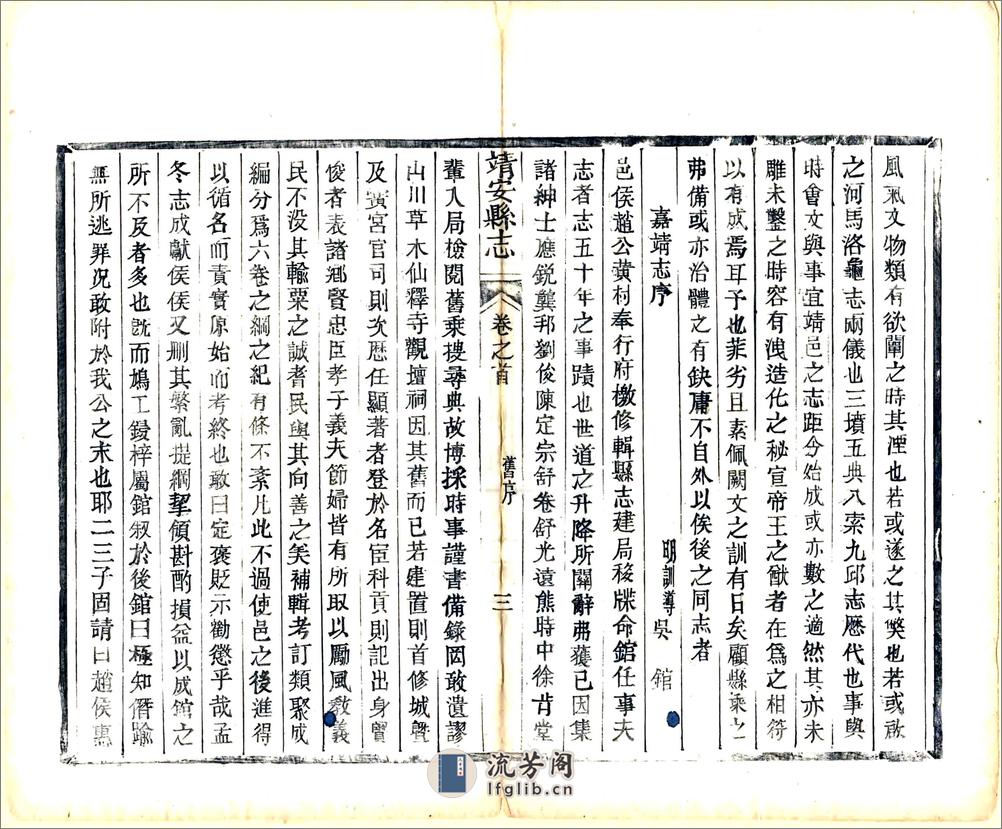 風氣文物類有欲闡之時其湮也若或遂之其獘也若或啟
之河馬洛龜志兩儀也三墳五典八索九邱志歷代也事與
時會文與事宜靖邑之志距今始成或亦數之適然其亦未
雕未鑿之時容有洩造化之秘宣帝王之猷者在爲之相符
以有成焉耳予也菲劣且素佩闕文之訓有日矣顧縣乘之
弗備或亦治體之有缺庸不自外以俟後之同志者
嘉靖志序
明訓導吳 錧
邑侯趙公黄村奉行府檄修輯縣志建局移牒命錧任事夫
志者志五十年之事蹟也世道之升降所關辭弗獲已因集
諸紳士應鋭龔邦劉俊陳定宗舒卷舒光遠熊時中徐肯堂
靖安縣志 卷之首 舊序 三
輩入局檢閱舊乘搜尋典故博採時事謹書備錄罔敢遺謬
山川草木仙釋寺觀壇祠因其舊而已若建置則首修城
及黌宮官司則次歷任顯著者登於名宦科貢則記出身賢
俊者表諸鄉賢忠臣孝子義夫節婦皆有所取以勵風教義
民不没其輸粟之誠耆民與其向善之美補輯考訂類聚成
編分爲六卷之綱之紀有條不紊凡此不過使邑之後進得
以循名而責實原始而考終也敢曰定褒貶示勸懲乎哉孟
冬志成獻侯侯又刪其繁亂提綱挈領斟酌損益以成錧之
所不及者多也既而鳩工鋟梓屬錧叙於後錧曰極知僭踰
無所逃罪况敢附於我公之末也耶二三子固請曰趙侯惠
流芳阁
lfglib.cn